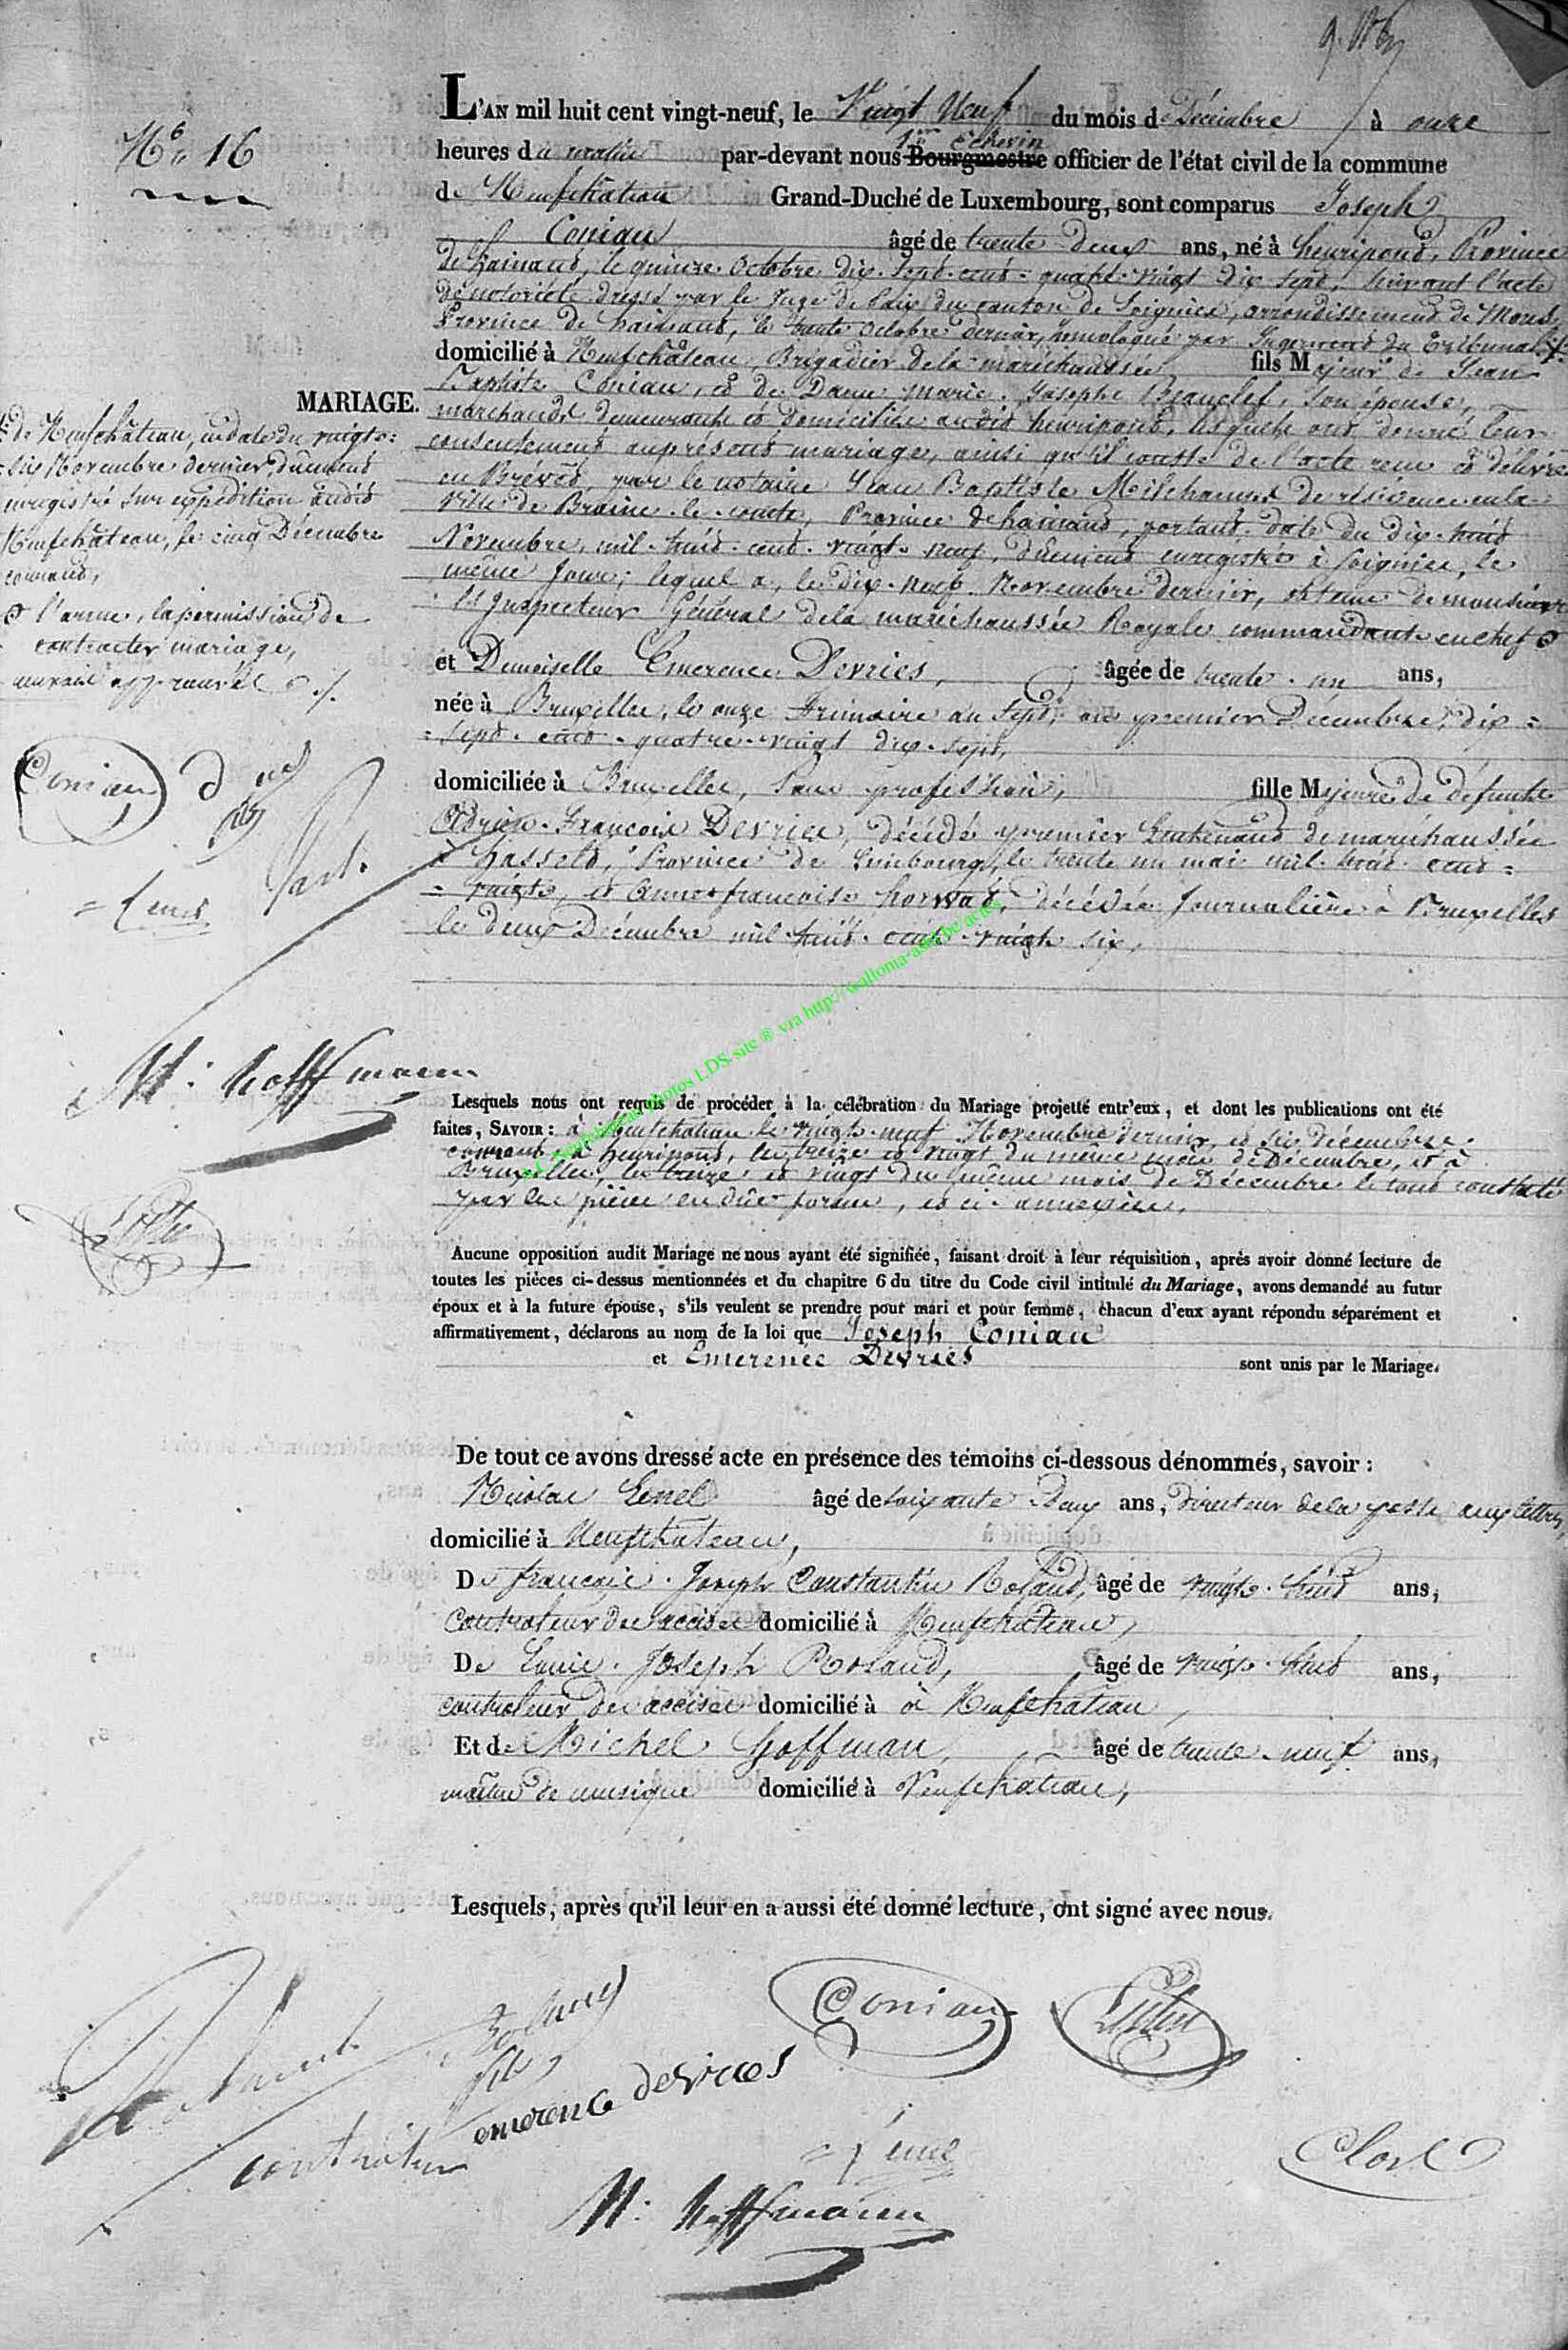 N° 16
L'AN mil huit cent vingt-neuf, le Vingt Neuf du mois de Décembre à onze
heures du matin par-devant nous 1er Echevin Bourgmestre officier de l'état civil de la commune
de Neufchâteau Grand-Duché de Luxembourg, sont comparus Joseph
Coniau âgé de trente deux ans, né à henripont, Province
de hainaut, le quinze Octobre dix-sept-cent-quatre-vingt dix sept, suivant l'acte
de notoriété dressé par le Juge de Paix du canton de Soignies, arrondissement de Mons,
Province de hainaut, le trente Octobre dernier, homologué par Jugement du Tribunal
domicilié à Neufchâteau, Brigadier de la maréchaussée, fils Majeur de Jean
Baptiste Coniau, et de Dame Marie Josephe Beauclef, son épouse,
MARIAGE.
marchands demeurants et domiciliés audit henripont, lesquels ont donné leur
consentement au présent mariage, ainsi qu'il conste de l'acte reçu et délivré
en Brévet, par le notaire Jean Baptiste de résidence en la
ville de Braine-le-comte, Province de hainaut, portant date du dix-huit
Novembre, mil-huit-cent-vingt-neuf, duement enregistré à Soignies, le
même jour; lequel a, le dix-neuf Novembre dernier, obtenu de monsieur
l'Inspecteur Général de la maréchaussée Royale commandant en chef
de Neufchâteau, en date du vingt-
six Novembre dernier duement
enregistré sur expédition audit
Neufchâteau, le cinq Décembre
courant,
l'arme, la permission de
contracter mariage,
et Demoiselle Emerence Devries, âgée de trente-un ans,
née à Bruxelles, le onze Frimaire an sept, ou premier Décembre, dix-
sept-cent-quatre-vingt dix-sept,
domiciliée à Bruxelles, sans profession, fille Majeure de défunts
Adrien-François Devries, décédé premier Lieutenant de maréchaussée
à hasselt, Province de Limbourg, le trente un mai mil-huit-cent-
vingt, et Anne françoise décédée Journalière à Bruxelles
le deux Décembre mil-huit-cent-vingt six,
Coniau
Lenel
M. hoffmann
A.C. Neufchateau photos LDS site ® via http://wallonia-asbl.be/actes
Lesquels nous ont requis de procéder à la célébration du Mariage projetté entr'eux, et dont les publications ont été
faites, SAVOIR: à Neufchâteau le vingt-neuf Novembre dernier, et six décembre
courant, à henripont, les treize et vingt du même mois de Décembre, et à
Bruxelles, les treize et vingt du même mois de Décembre le tout constaté
par les pièces en dûe forme, et ci-annexées.
Aucune opposition audit Mariage ne nous ayant été signifiée, faisant droit à leur réquisition, après avoir donné lecture de
toutes les pièces ci-dessus mentionnées et du chapitre 6 du titre du Code civil intitulé du Mariage, avons demandé au futur
époux et à la future épouse, s'ils veulent se prendre pour mari et pour femme, chacun d'eux ayant répondu séparément et
affirmativement, déclarons au nom de la loi que Joseph Coniau
et Emerence Devries sont unis par le Mariage.
De tout ce avons dressé acte en présence des témoins ci-dessous dénommés, savoir:
Nicolas Lenel âgé de soixante-deux ans, directeur de la poste aux lettres,
domicilié à Neufchâteau,
De françois-Joseph Constantin Roland, âgé de vingt-huit ans,
Controleur des accises domicilié à Neufchâteau,
De Louis-Joseph Roland, âgé de vingt-huit ans,
controleur des accises domicilié à à Neufchâteau,
Et de Michel Hoffman, âgé de trente-neuf ans,
maître de musique domicilié à Neufchâteau,
Lesquels, après qu'il leur en a aussi été donné lecture, ont signé avec nous.
Coniau
emerence devries
Lenel
M. Hoffmann